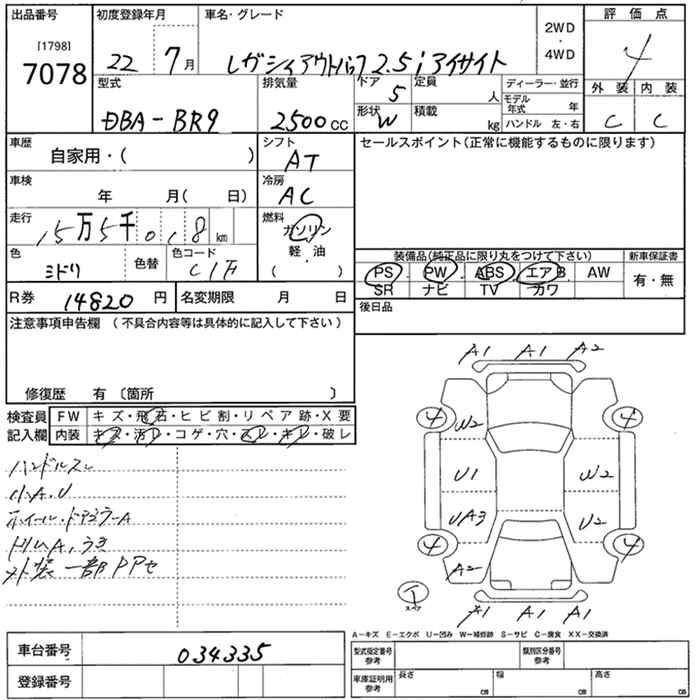 出品番号
[1798]
7078
初度登録年月
22 7月
車名・グレード
レガシィアウトバック2.5iアイサイト
2WD
・
4WD
評価点
4
外装 内装
C C
型式
DBA-BR9
排気量
2500cc
ドア
5
定員
人
形状
W
積載
kg
ディーラー・並行
モデル年式 年
ハンドル 左・右
車歴
自家用・( )
シフト
AT
セールスポイント(正常に機能するものに限ります)
車検
年 月( 日)
冷房
AC
走行
15万5千018km
燃料
ガソリン
軽・油
( ・ )
色
ミドリ
色替
色コード
装備品(純正品に限り丸をつけて下さい)
PS PW ABS エアB AW
SR ナビ TV カワ
新車保証書
有・無
R券 14820円
名変期限 月 日
後日品
注意事項申告欄 (不具合内容等は具体的に記入して下さい)
修復歴 有 〔箇所 〕
検査員
記入欄
FW キズ・飛石・ヒビ割・リペア跡・X要
内装 キズ・汚レ・コゲ・穴・スレ・キレ・破レ
ハンドルスレ
小A.U
ホイール・ドアミラーA
ドリムA,うき
外装一部PPセ
A1 A1 A2
4 4
W2
U1 W2
UA3 U2
4 4
A2
T
スペア
A1 A1 A1
A-キズ E-エクボ U-凹み W-補修跡 S-サビ C-腐食 XX-交換済
車台番号
034335
登録番号
型式指定番号
参考
類別区分番号
参考
車庫証明用
参考
長さ cm
幅 cm
高さ cm